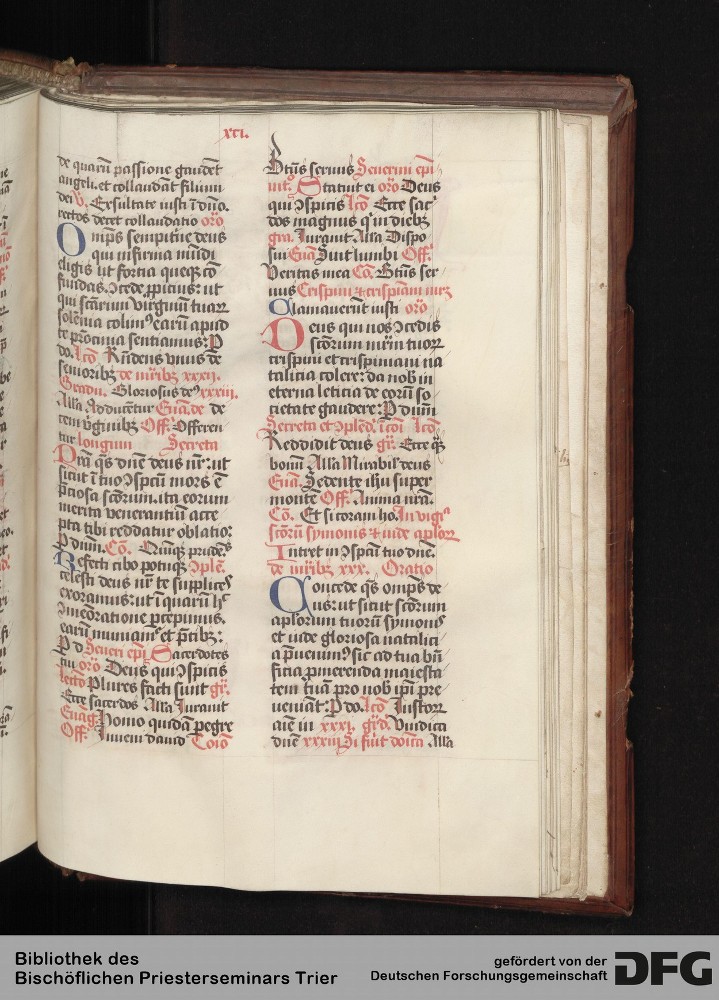 xci.
de quarū passione gaudēt
angeli. et collaudāt filium
dei V. Exsultate iusti ī dño.
rectos decet collaudatio orō
Omp̄s sempit̄ne deus
qui infirma mūdi
eligis ut fortia queqȝ cō
fundas. ꝯcede ꝓpicius: ut
qui scārum virginū tuaꝝ
solēnia colimꝰ earū apud
te patrocinia sentiamus: P
do. Lc̄o Rn̄dens vnus de
senioribȝ de mr̄ibȝ xxxij.
Gradu. Gloriosus deꝰ xxxiii.
Alla Adducētur Euā. de de
cem v̄ginibȝ Off. Offeren
tur longum Secreta
Pr̄a q̄s dñe deus nr̄: ut
sicut ī tuo ꝯspectū mors ē
p̄ciosa scōrum. ita eorum
merita venerantiū acce
pta tibi reddatur oblatio:
P dūm. Cō. Quīqȝ prudēs
Refecti cibo potuqȝ ꝯplē.
celesti deus nr̄ te supplices
exoramus: ut ī quarū hc̄
ꝯmēoratione percepimus.
earū muniamᷣ et p̄cibȝ:
P d Seueri ep̄i Sacerdotes
tui orō Deus qui ꝯspicis
Lectō Plures facti sunt gr̄.
Ecce sacerdos Alla Iurauit
Euāg. Homo quidā peregre
Off. Inueni dauid Coīo
Btūs seruus Seuerini ep̄i
int̄. Statuit ei orō Deus
qui ꝯspicis Lc̄o Ecce sac
dos magnus q̄ in diebȝ
gra. Iurauit Alla Dispo
sui Euā Sint lumbi Off.
Veritas mea Cō. Btūs ser
uus Crispini et crispiani mr̄
Clamauerūt iusti orō
Deus qui nos ꝯcedis
scōrum mr̄m tuoꝝ
crispini et crispiniani na
talitia colere: da nob̄ in
eterna leticia de eorū so
cietate gaudere: P dūm
Secreta et ꝯplēd. ī cōi Lc̄o
Reddidit deus gr̄. Ecce q̄
bonū Alla Mirabił deus
Euā. Sedente ihu super
monte Off. Anima nr̄a.
Cō. Et si coram ho. In vigꝉa
scōrū symonis et iude apłorꝝ
Intret in ꝯspectū tuo dñe.
de mr̄ibȝ xxx. Oratio
Concede q̄s omp̄s de
us: ut sicut scōrum
apłorum tuorū symonis
et iude gloriosa natalici
a p̄uenimꝰ sic ad tua bn̄
ficia pmerenda maiesta
tem tuā pro nob̄ ip̄i pre
ueniāt: P do. Lc̄o Iustorꝝ
aīe in xxxi. gr̄d. Vindica
dñe xxxiij Si fūit dōica Alla
Bibliothek des
Bischöflichen Priesterseminars Trier
gefördert von der
Deutschen Forschungsgemeinschaft
DFG